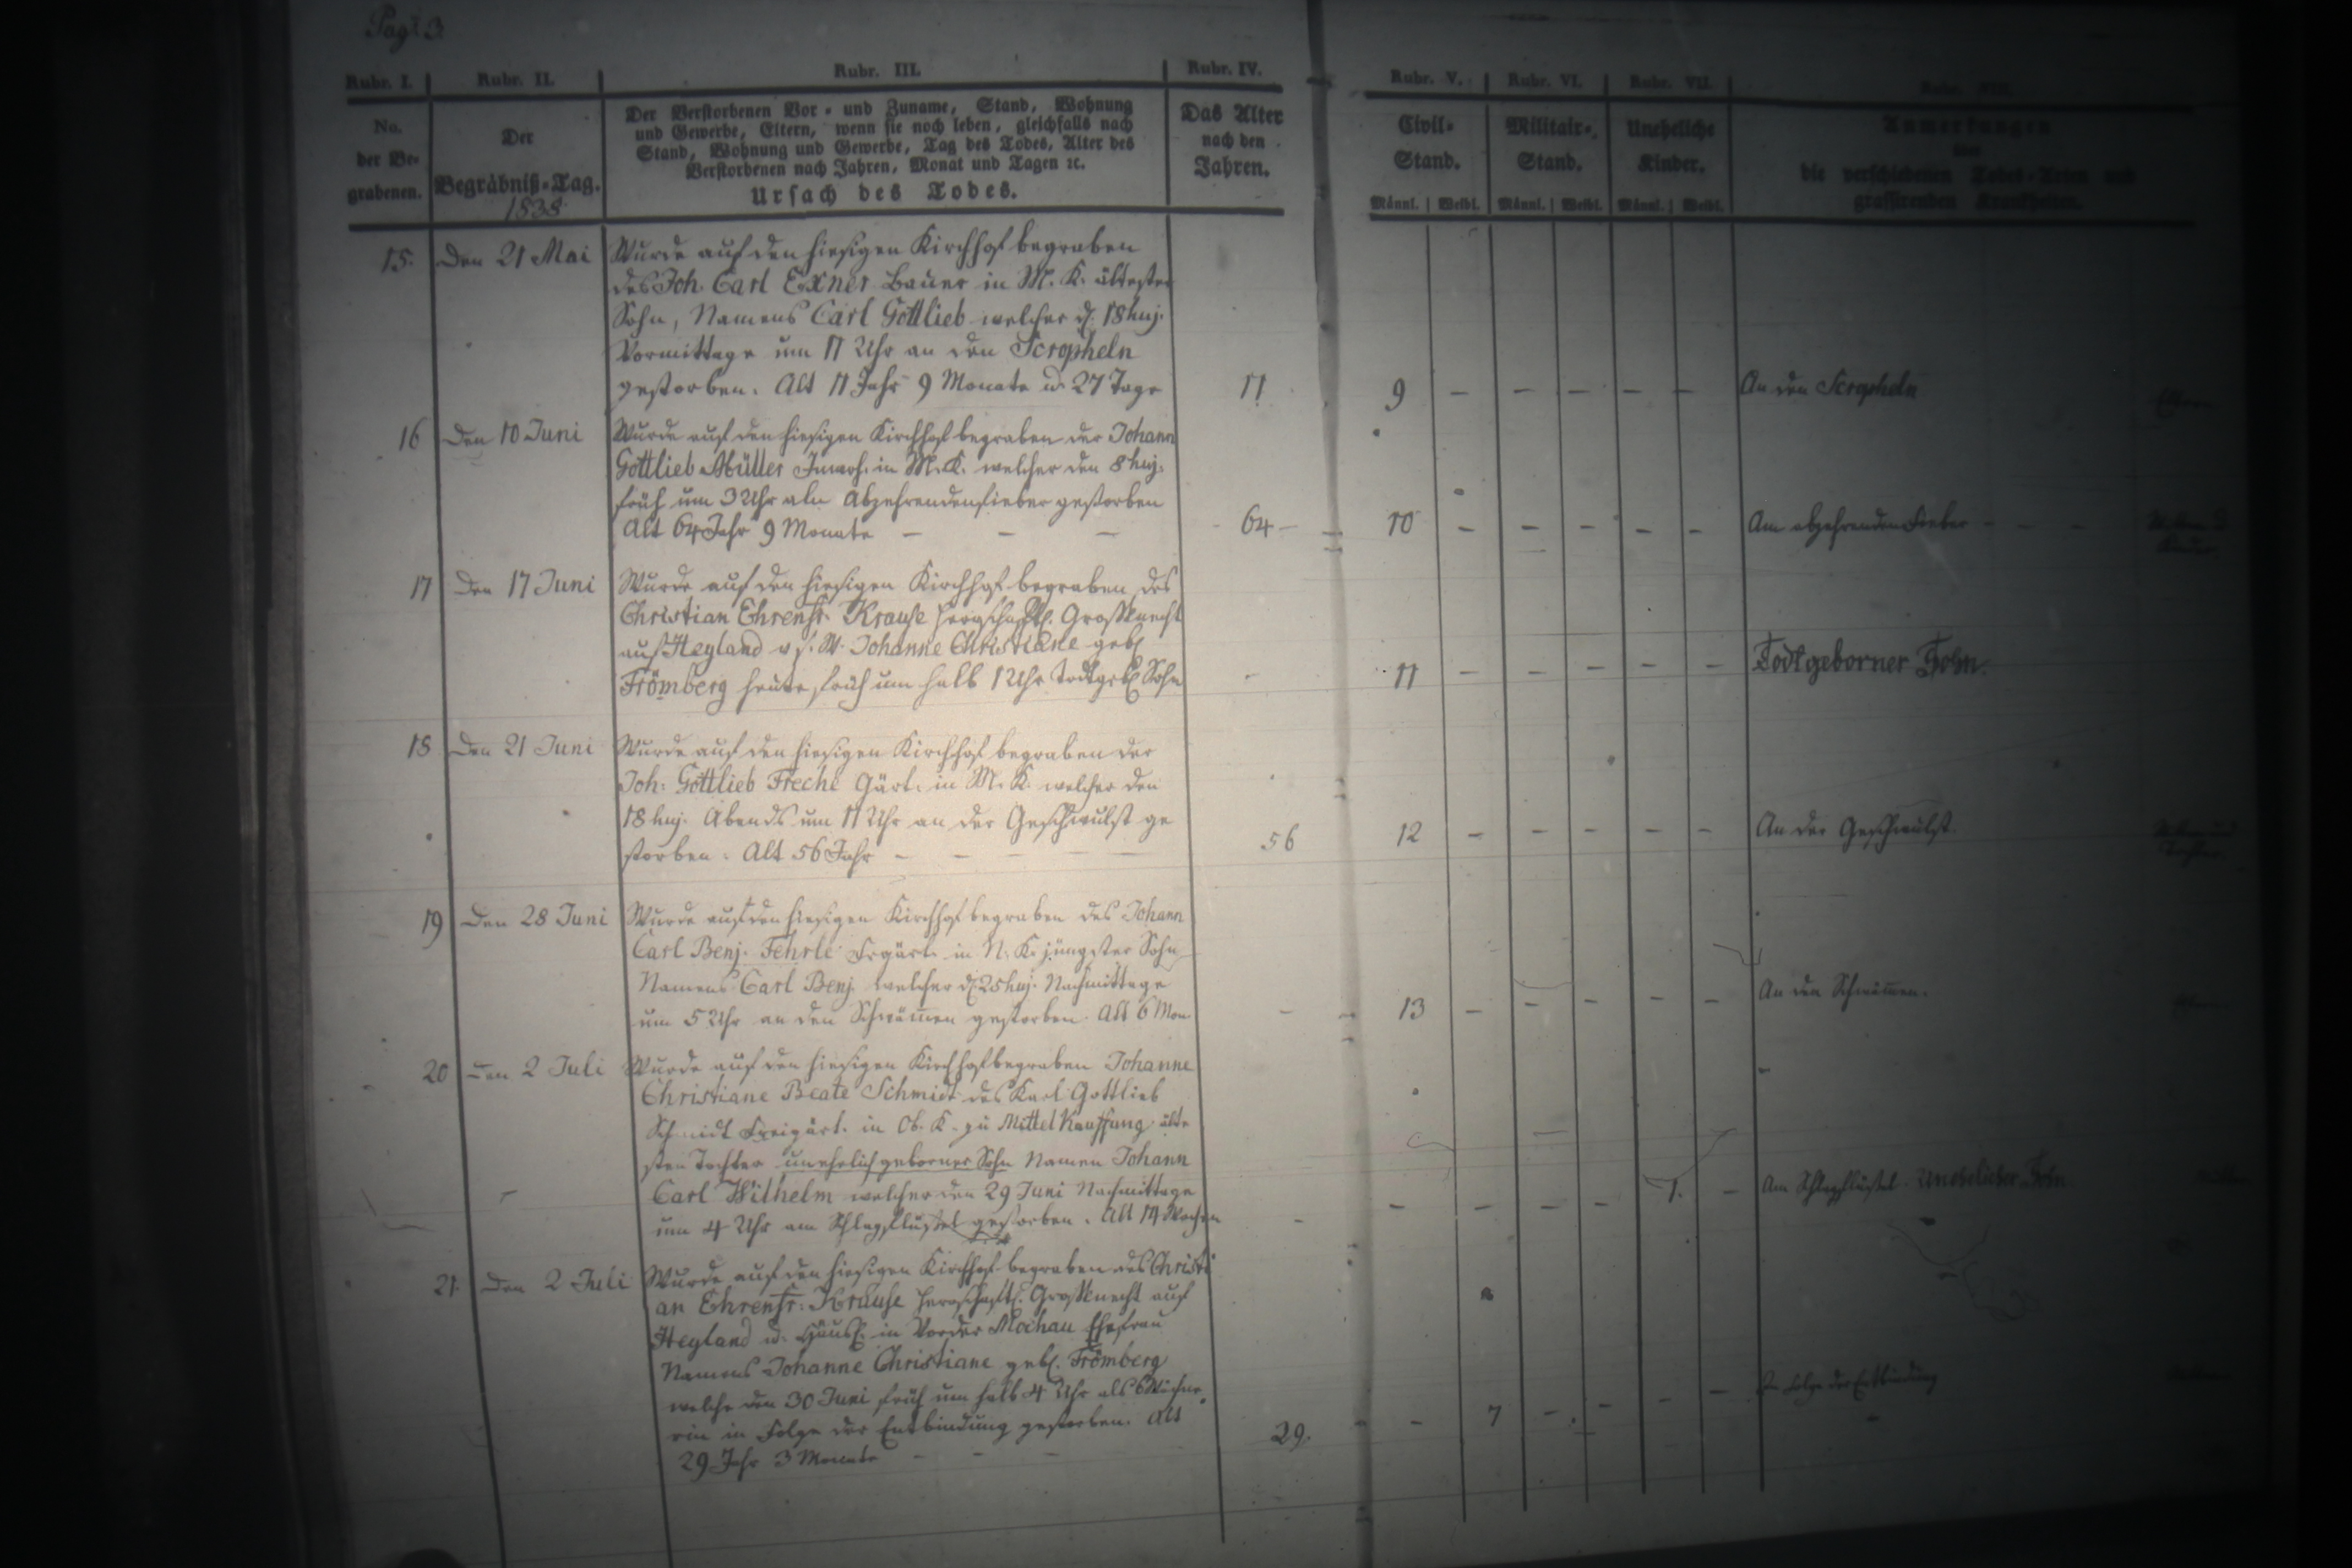 Pag: 3.
Rubr. I. Rubr. II. Rubr. III. Rubr. IV. Rubr. V. Rubr. VI. Rubr. VII. Rubr. VIII.
No. der Be-grabenen.
Der Begräbniß-Tag.
1838
Der Verstorbenen Vor- und Zuname, Stand, Wohnung
und Gewerbe, Eltern, wenn sie noch leben, gleichfalls nach
Stand, Wohnung und Gewerbe, Tag des Todes, Alter des
Verstorbenen nach Jahren, Monat und Tagen ꝛc.
Ursach des Todes.
Das Alter
nach den
Jahren.
Civil-
Stand.
Männl. Weibl.
Militair-
Stand.
Männl. Weibl.
Uneheliche
Kinder.
Männl. Weibl.
Anmerkungen
die verschiedenen Todes-Arten und
grassirenden Krankheiten.
15. Den 21 Mai Wurde auf den hiesigen Kirchhof begraben
des Joh. Carl Exner Bauer in M. K. ältester
Sohn, Namens Carl Gottlieb welcher d. 18 huj.
Vormittage um 11 Uhr an den Scropheln
gestorben. Alt 11 Jahr 9 Monate u. 27 Tage 11 9 – – – – – An den Scropheln
16 Den 10 Juni Wurde auf den hiesigen Kirchhof begraben der Johann
Gottlieb Müller Inwoh. in M. K. welcher den 8 huj.
früh um 3 Uhr Abzehrendenfieber gestorben
Alt 64 Jahr 9 Monate – – – 64 – 10 – – – – – Am abzehrenden Fieber
17 Den 17 Juni Wurde auf den hiesigen Kirchhof begraben des
Christian Ehrenfr. Krause herrschaftl. Großknecht
auf Heyland u. s. W. Johanne Christiane geb.
Frömberg heute früh um halb 1 Uhr todtgeb. Sohn - 11 – – – – – Todtgeborner Sohn.
18 Den 21 Juni Wurde auf den hiesigen Kirchhof begraben der
Joh. Gottlieb Freche Gärt. in M. K. welcher den
18 huj. Abends um 11 Uhr an der Geschwulst ge
storben. Alt 56 Jahr – – – – 56 12 – – – – – An der Geschwulst.
19 Den 28 Juni Wurde auf den hiesigen Kirchhof begraben des Johann
Carl Benj. Fehrle Frgärt. in N. K. jüngster Sohn
Namens Carl Benj. welcher d. 25 huj. Nachmittage
um 5 Uhr an den Schwämen gestorben. Alt 6 Mon. - 13 – – – – – An den Schwämen.
20 Den 2 Juli Wurde auf den hiesigen Kirchhof begraben Johanne
Christiane Beate Schmidt des Karl Gottlieb
Schmidt Freigärt. in Ob. K. zu Mittel Kauffung älte
sten Tochter unehelich geborner Sohn Namen Johann
Carl Wilhelm welcher den 29 Juni Nachmittage
um 4 Uhr am Schlagflußel gestorben. Alt 14 Wochen - – – – – 1. – Am Schlagflußel. Unehelicher Sohn
21. Den 2 Juli Wurde auf den hiesigen Kirchhof begraben des Christi
an Ehrenfr. Krause herrschaftl. Großknecht auf
Heyland u. Häusl. in Vorder Mochau Ehefrau
Namens Johanne Christiane geb. Frömberg
welche den 30 Juni früh um halb 4 Uhr als 6 Wöchne
rin in Folge der Entbindung gestorben. Alt
29 Jahr 3 Monate – – – 29. – 7 – – – – In Folge der Entbindung